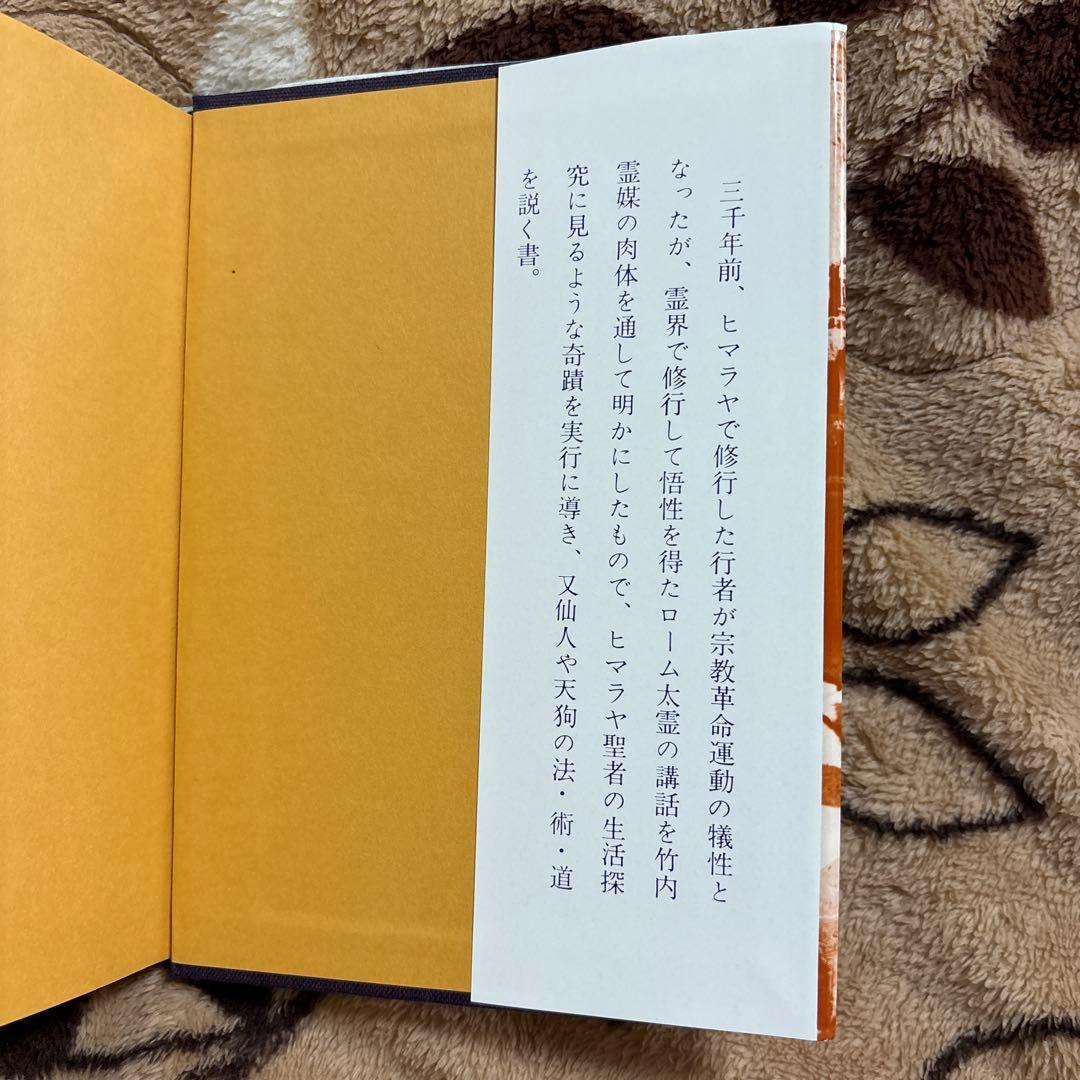 三千年前、ヒマラヤで修行した行者が宗教革命運動の犠牲と
なったが、霊界で修行して悟性を得たローム太霊の講話を竹内
霊媒の肉体を通して明かにしたもので、ヒマラヤ聖者の生活探
究に見るような奇蹟を実行に導き、又仙人や天狗の法・術・道
を説く書。